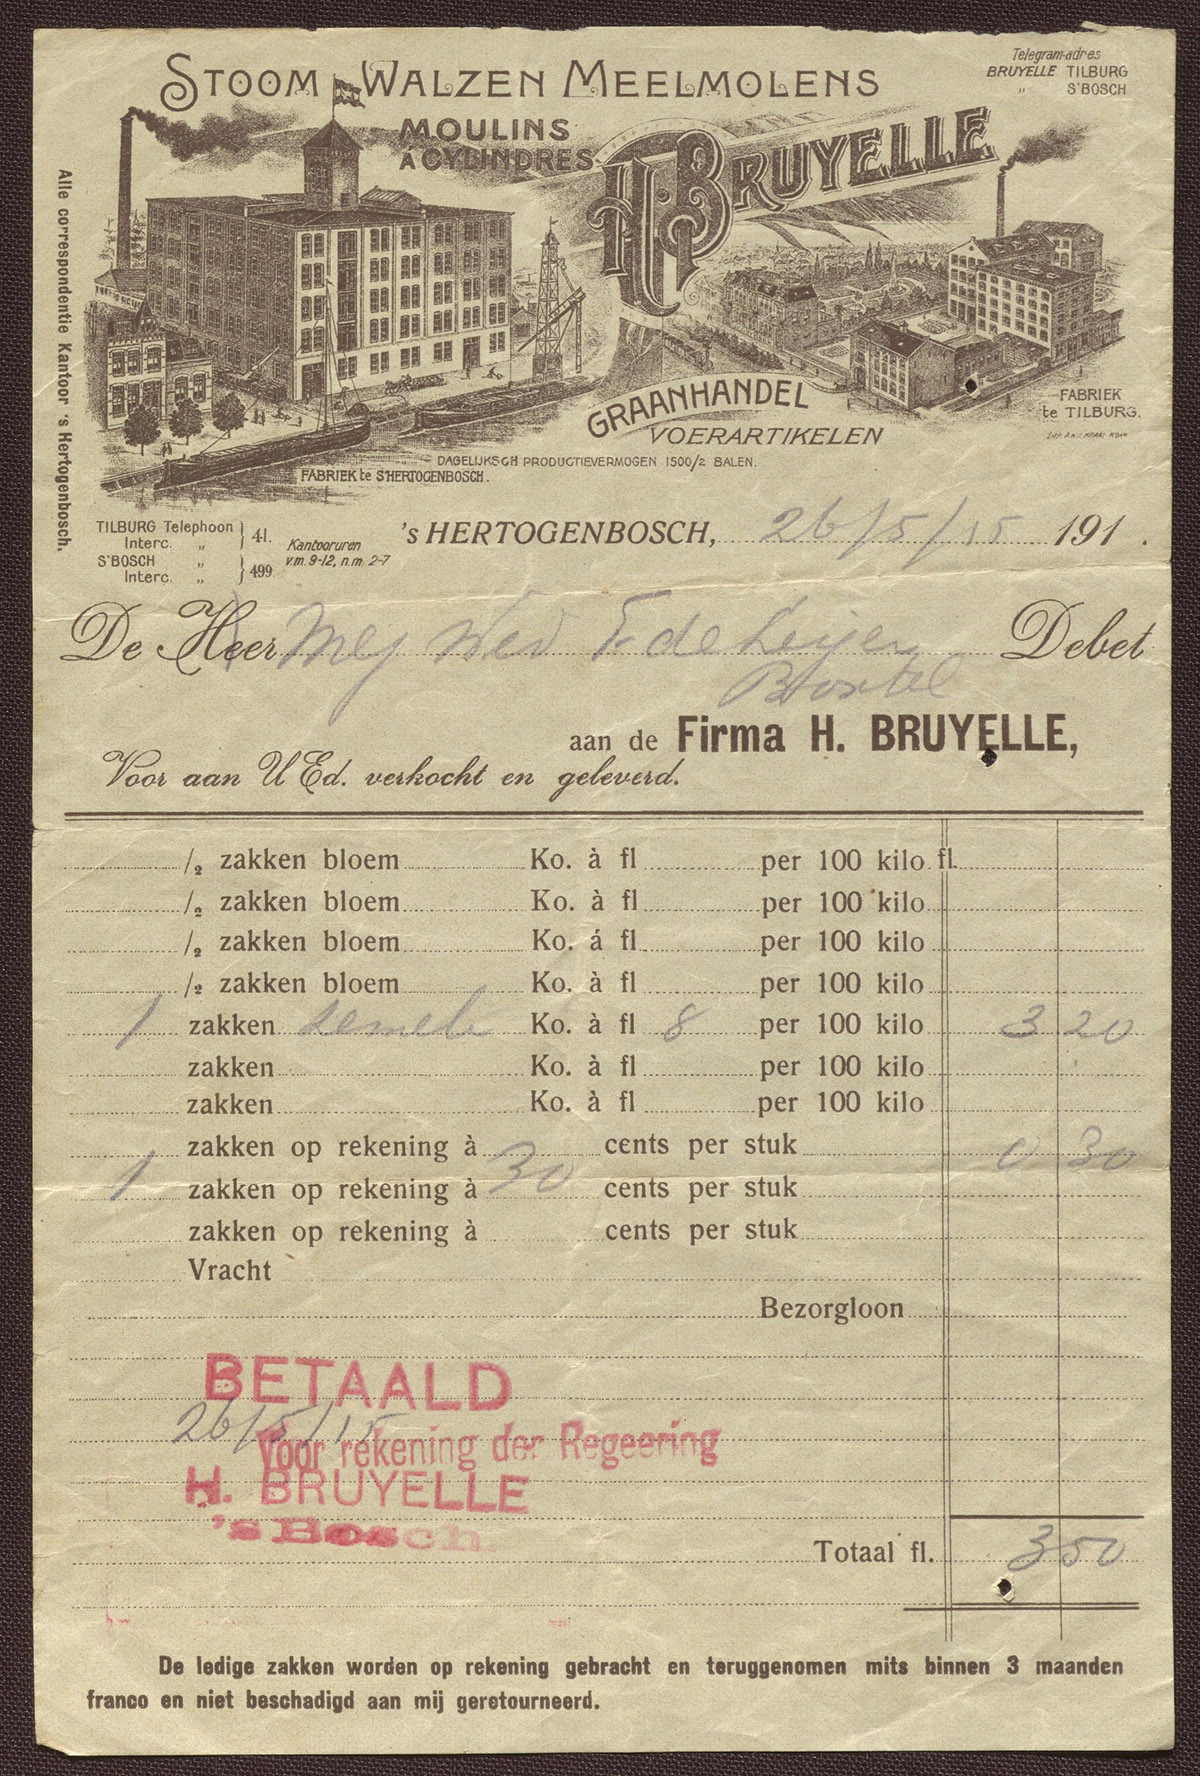 STOOM WALZEN MEELMOLENS
MOULINS
A CYLINDRES
H. BRUYELLE
Telegram-adres
BRUYELLE TILBURG
„ S'BOSCH
Alle correspondentie Kantoor 's Hertogenbosch.
GRAANHANDEL
VOERARTIKELEN
DAGELIJKSCH PRODUCTIEVERMOGEN 1500/2 BALEN.
FABRIEK te S'HERTOGENBOSCH.
FABRIEK
te TILBURG.
TILBURG Telephoon } 41.
Interc. „
S'BOSCH „ } 499
Interc. „
Kantooruren
v.m. 9-12, n.m. 2-7
's HERTOGENBOSCH, 26/5/15 191 .
De Heer Mej Wed F. de Leijer Debet
Boxtel
aan de Firma H. BRUYELLE,
Voor aan U Ed. verkocht en geleverd.
/2 zakken bloem Ko. à fl per 100 kilo fl.
/2 zakken bloem Ko. à fl per 100 kilo
/2 zakken bloem Ko. á fl per 100 kilo
/2 zakken bloem Ko. à fl per 100 kilo
1 zakken zemele Ko. à fl 8 per 100 kilo 3 20
zakken Ko. à fl per 100 kilo
zakken Ko. à fl per 100 kilo
zakken op rekening à cents per stuk 0 30
1 zakken op rekening à 30 cents per stuk
zakken op rekening à cents per stuk
Vracht
Bezorgloon
BETAALD
26/5/15
Voor rekening der Regeering
H. BRUYELLE
's Bosch
Totaal fl. 3 50
De ledige zakken worden op rekening gebracht en teruggenomen mits binnen 3 maanden
franco en niet beschadigd aan mij geretourneerd.